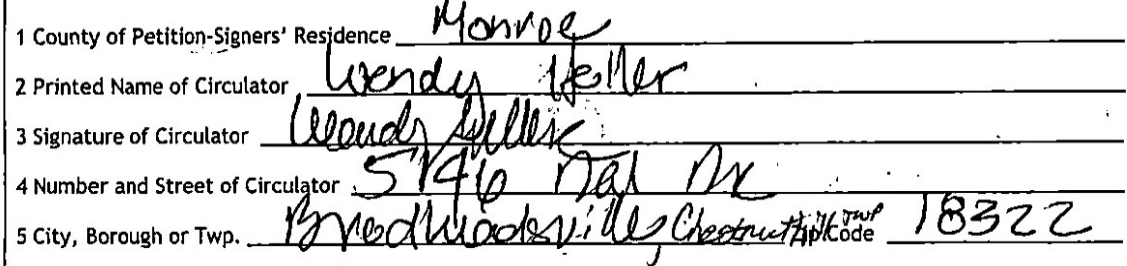 1 County of Petition-Signers' Residence Monroe
2 Printed Name of Circulator Wendy Heller
3 Signature of Circulator Wendy Heller
4 Number and Street of Circulator 5146 Dr
5 City, Borough or Twp. Brodheadsville, Chestnuthill Twp Zip Code 18322